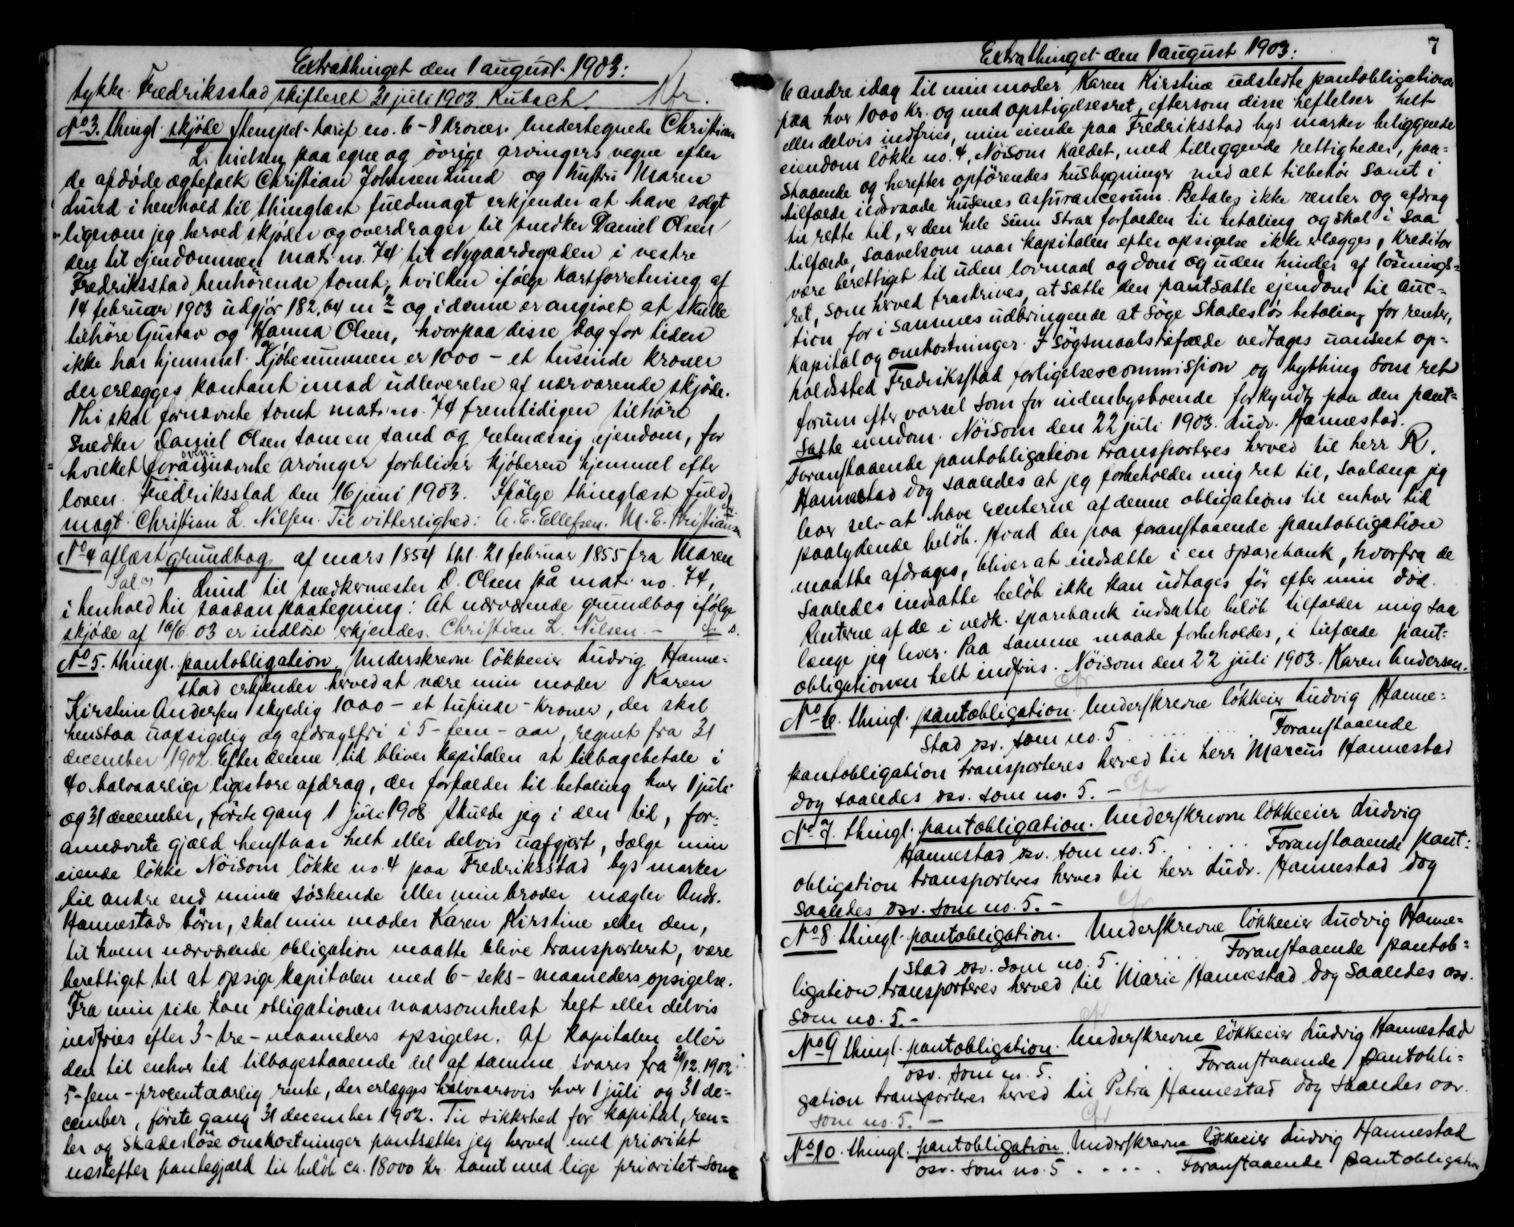 Extrathinget den 1 august 1903:
tykke. Fredriksstad skifteret 31 juli 1903 Kubach. Cfr.
No 3. thingl. skjøde Stempel-tarif no. 6 - 8 kroner. Undertegnede Christian
L. Nielsen paa egne og øvrige arvingers vegne efter
de afdøde ægtefolk Christian Johnsen Lund og hustru Maren
Lund i henhold til thinglæst fuldmagt erkjender at have solgt
ligesom jeg herved skjøder og overdrager til snedker Daniel Olsen
den til ejendommen matr. no. 74 til Nygaardsgaden i vestre
Fredriksstad henhørende tomt, hvilken ifølge kartforretning af
14 februar 1903 udgjør 182,64 m2 og i denne er angivet at skulle
tilhøre Gustav og Hanna Olsen, hvorpaa disse dog for tiden
ikke har hjemmel. Kjøbesummen er 1000 - et tusinde kroner
der erlægges kontant imod udleverelse af nærværende skjøde.
Thi skal fornævnte tomt matr. no. 74 fremtidigen tilhøre
Snedker Daniel Olsen som en sand og retmæssig ejendom, for
hvilket ovennævnte arvinger forbliver kjøberen hjemmel efter
loven. Fredriksstad den 16 juni 1903. Ifølge thinglæst fuld-
magt. Christian L. Nilsen. Til vitterlighed: A. E. Ellefsen. M. E. Kristiansen
No 4 aflæst grundbog af mars 1854 thl. 21 februar 1855 fra Maren
Lund til snedkermester D. Olsen på matr. no. 74,
i henhold til saadan paategning: At nærværende grundbog ifølge
skjøde af 16/6 03 er indløst erkjendes. Christian L. Nilsen. -
No 5. thingl. pantobligation. Underskrevne løkkeeier Ludvig Hanne-
stad erkjender herved at være min moder Karen
Kirstine Andersen skyldig 1000 - et tusinde - kroner, der skal
henstaa uopsigelig og afdragsfri i 5 - fem - aar, regnet fra 31
december 1902. Efter denne tid bliver kapitalen at tilbagebetale i
40 halvaarlige ligestore afdrag, der forfalder til betaling hver 1 juli
og 31 december, første gang 1 juli 1908. Skulde jeg i den tid, for-
annævnte gjæld henstaar helt eller delvis uafgjort, sælge min
eiende løkke Nøisom løkke no. 4 paa Fredriksstad bys marker
til andre end mine søskende eller min broder mægler Andr.
Hannestads børn, skal min moder Karen Kirstine eller den,
til hvem nærværende obligation maatte blive transporteret, være
berettiget til at opsige kapitalen med 6 - seks - maaneders opsigelse.
Fra min side kan obligationen naarsomhelst helt eller delvis
indfries efter 3 - tre - maaneders opsigelse. Af kapitalen eller
den til enhver tid tilbagestaaende del af samme svares fra 31/12 1902
5 - fem - procent aarlig rente, der erlægges halvaarsvis hver 1 juli og 31 de-
cember, første gang 31 december 1902. Til sikkerhed for kapital, ren-
ter og skadesløse omkostninger pantsætter jeg herved med prioritet
næstefter pantegjæld til beløb ca. 18000 kr. samt med lige prioritet som
Extrathinget den 1 august 1903:
7
6 andre idag til min moder Karen Kirstine udstedte pantobligationer
paa hver 1000 kr. og med opstigelsesret, eftersom disse heftelser helt
eller delvis indfries, min eiende paa Fredriksstad bys marker beliggende
eiendom løkke no. 4, Nøisom kaldet, med tilliggende rettigheder, paa-
staaende og herefter opførendes husbygninger med alt tilbehør samt i
tilfælde ildsvaade husenes assurancesum. Betales ikke renter og afdrag
til rette tid, er den hele sum strax forfalden til betaling og skal i saa
tilfælde, saavelsom naar kapitalen efter opsigelse ikke erlægges, kreditor
være berettiget til uden lovmaal og dom og uden hinder af løsnings-
ret, som herved fraskrives, at sætte den pantsatte ejendom til auc-
tion for i sammes udbringende at søge skadesløs betaling for renter,
kapital og omkostninger. I søgsmaalstilfælde vedtages uanseet op-
holdssted Fredriksstad forligelsescommission og bything som ret
forum efter varsel som for indenbysboende forkyndt paa den pant-
satte eiendom. Nøisom den 22 juli 1903. Ludv. Hannestad.
Foranstaaende pantobligation transporteres herved til herr R.
Hannestad dog saaledes at jeg forbeholder mig ret til, saalænge jeg
lever selv at hæve renterne af denne obligations til enhver tid
paalydende beløb. Hvad der paa foranstaaende pantobligation
maatte afdrages, bliver at indsætte i en sparebank, hvorfra de
saaledes indsatte beløb ikke kan udtages før efter min død.
Renterne af de i vedk. sparebank indsatte beløb tilfalder mig saa
længe jeg lever. Paa samme maade forbeholdes, i tilfælde pant-
obligationen helt indfries. Nøisom den 22 juli 1903. Karen Andersen.
Cfr
No 6. thingl. pantobligation. Underskrevne løkkeeier Ludvig Hanne-
stad osv. som no. 5 . . . . . . Foranstaaende
pantobligation transporteres herved til herr Marcus Hannestad
dog saaledes osv. som no. 5. - Cfr
No 7. thingl. pantobligation. Underskrevne løkkeeier Ludvig
Hannestad osv. som no. 5. . . . . . Foranstaaende pant-
obligation transporteres herved til herr Ludv. Hannestad dog
saaledes osv. som no. 5. - Cfr
No 8 thingl. pantobligation. Underskrevne løkkeeier Ludvig Hanne-
stad osv. som no. 5 . . . . Foranstaaende pantob-
ligation transporteres herved til Marie Hannestad dog saaledes osv.
som no. 5. - Cfr
No 9 thingl. pantobligation. Underskrevne løkkeeier Ludvig Hannestad
osv. som no. 5. . . . . Foranstaaende pantobli-
gation transporteres herved til Petra Hannestad dog saaledes osv.
som no. 5. - Cfr
No 10. thingl. pantobligation. Underskrevne løkkeeier Ludvig Hannestad
osv. som no. 5 . . . . . Foranstaaende pantobligation